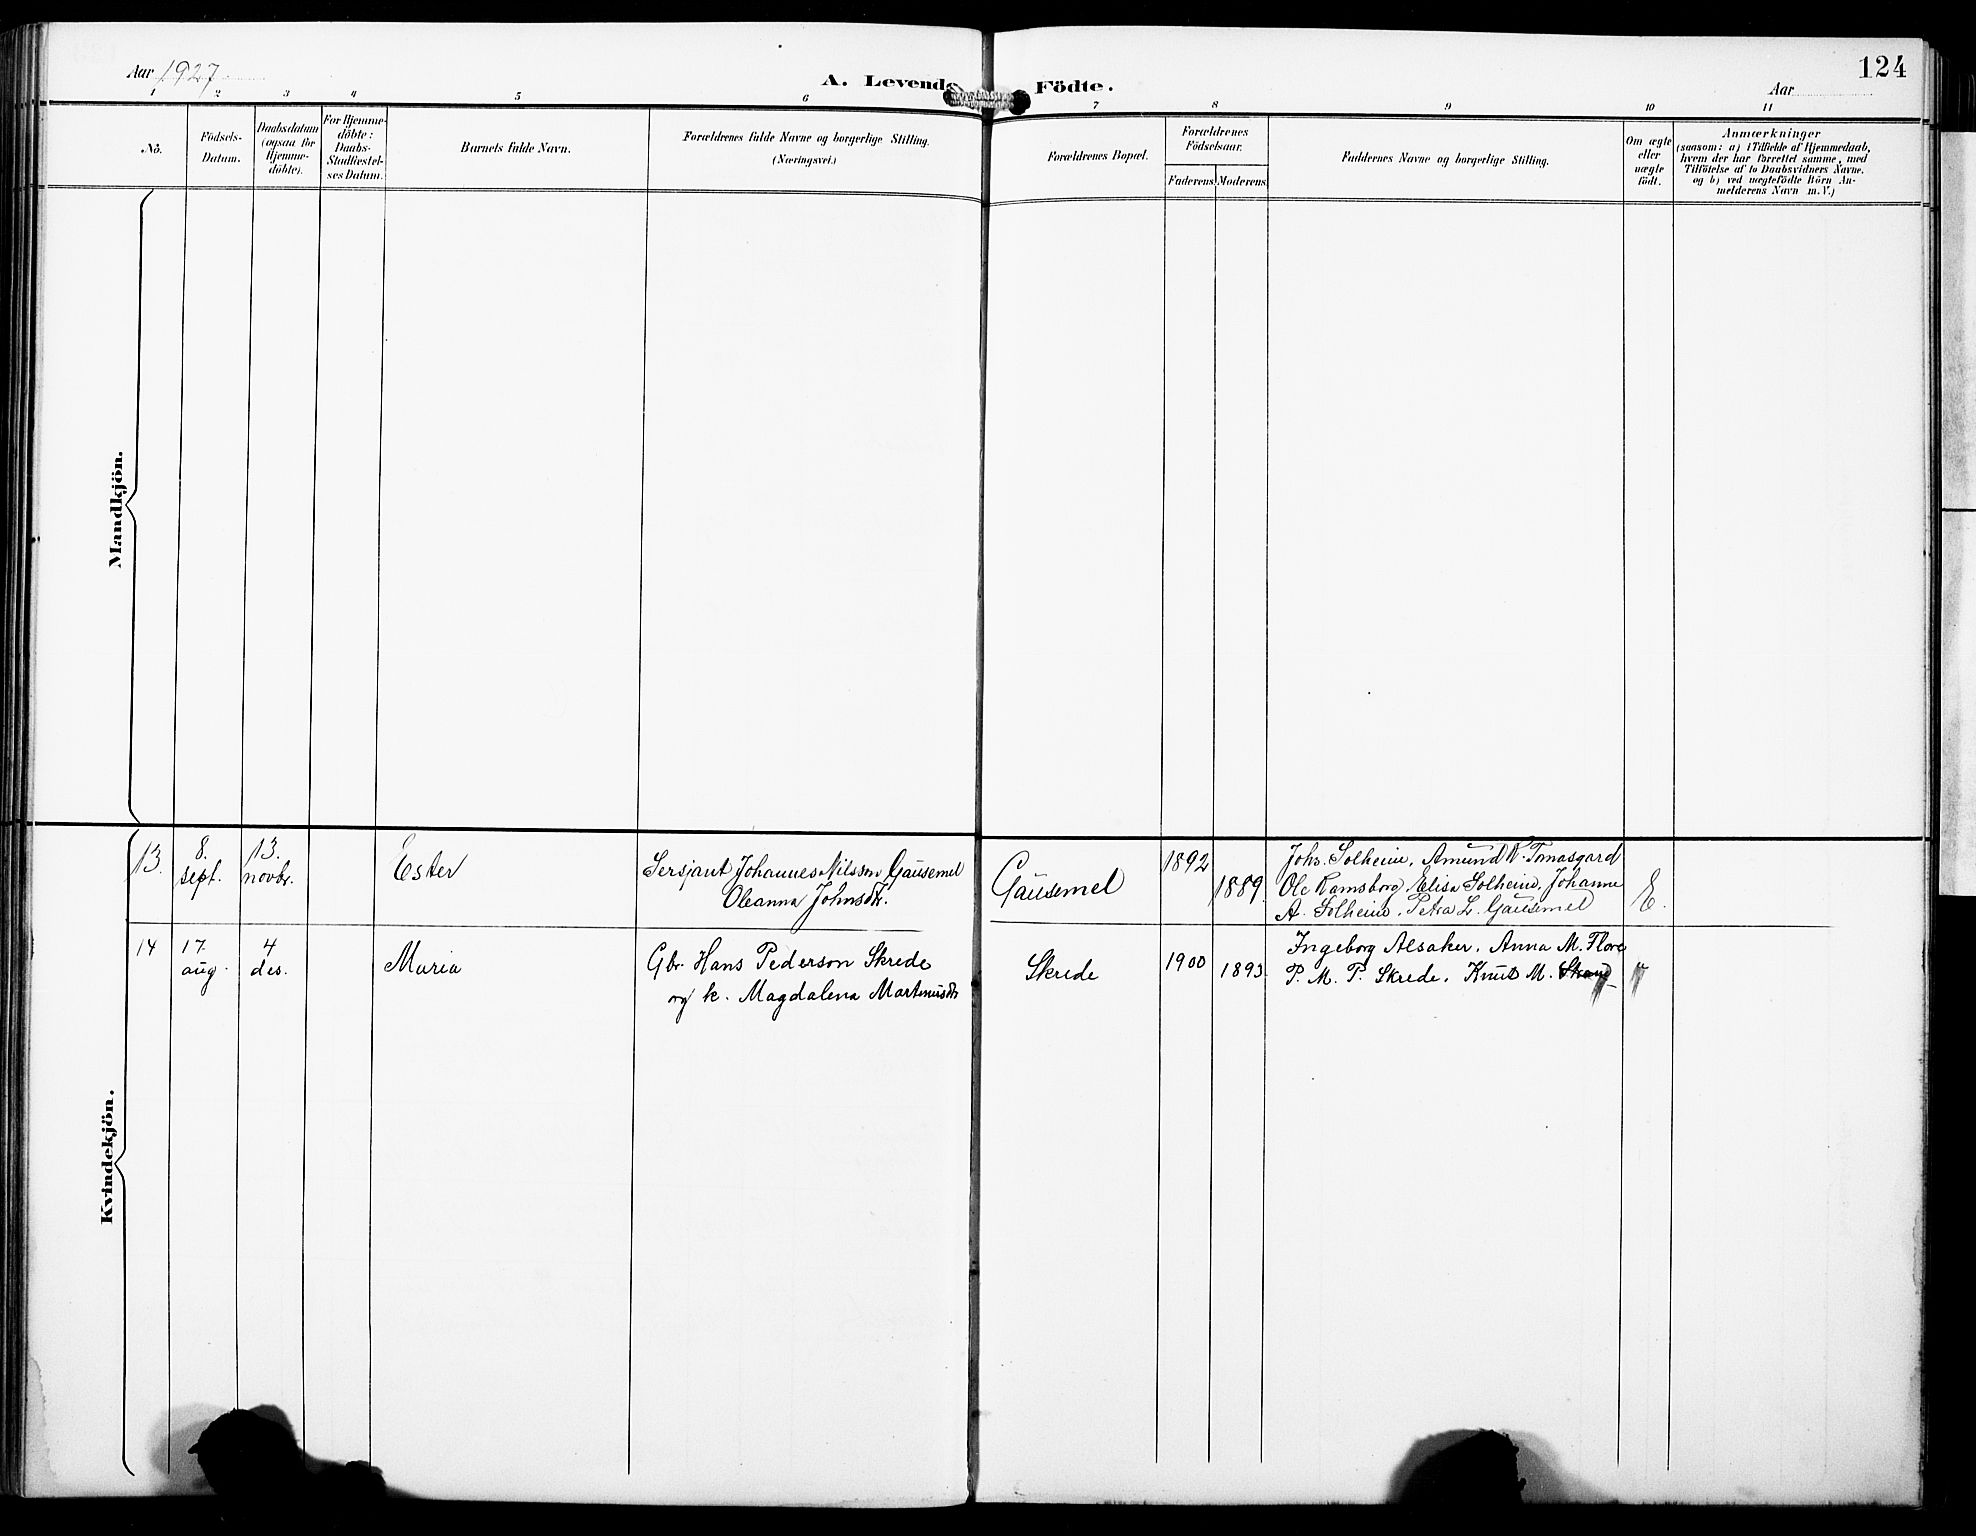 124
Aar 1927
A. Levende Födte.
Aar
1 2 3 4 5 6 7 8 9 10 11
No.
Födsels-
Datum.
Daabsdatum
(ogsaa for
Hjemme-
döbte).
For Hjemme-
döbte:
Daabs-
Stadfæstel-
ses Datum.
Barnets fulde Navn.
Forældrenes fulde Navne og borgerlige Stilling.
(Næringsvei.)
Forældrenes Bopæl.
Forældrenes
Födselsaar.
Faderens
Moderens
Faddernes Navne og borgerlige Stilling.
Om ægte
eller
uægte
födt.
Anmærkninger
(saasom: a) i Tilfælde af Hjemmedaab,
hvem der har forrettet samme, med
Tilföielse af to Daabsvidners Navne,
og b) ved uægtefödte Börn An-
melderens Navn m. V.)
Mandkjön.
Kvindekjön.
13.
8.
sept.
13.
novbr.
Ester
Sersjant Johannes Nilsson Gausemel
Oleanna Johnsdtr.
Gausemel
1892
1889.
Johs. Solheim, Amund K. Tomasgard
Ole Ramsborg, Elisa Solheim, Johanne
A. Solheim, Petra L. Gausemel
E.
14
17.
aug.
4
des.
Maria
Gbr. Hans Pederson Skrede
og k. Magdalena Martinusdtr
Skrede
1900
1893
Ingeborg Alsaker, Anna M. Flore
P. M. P. Skrede, Knut M.